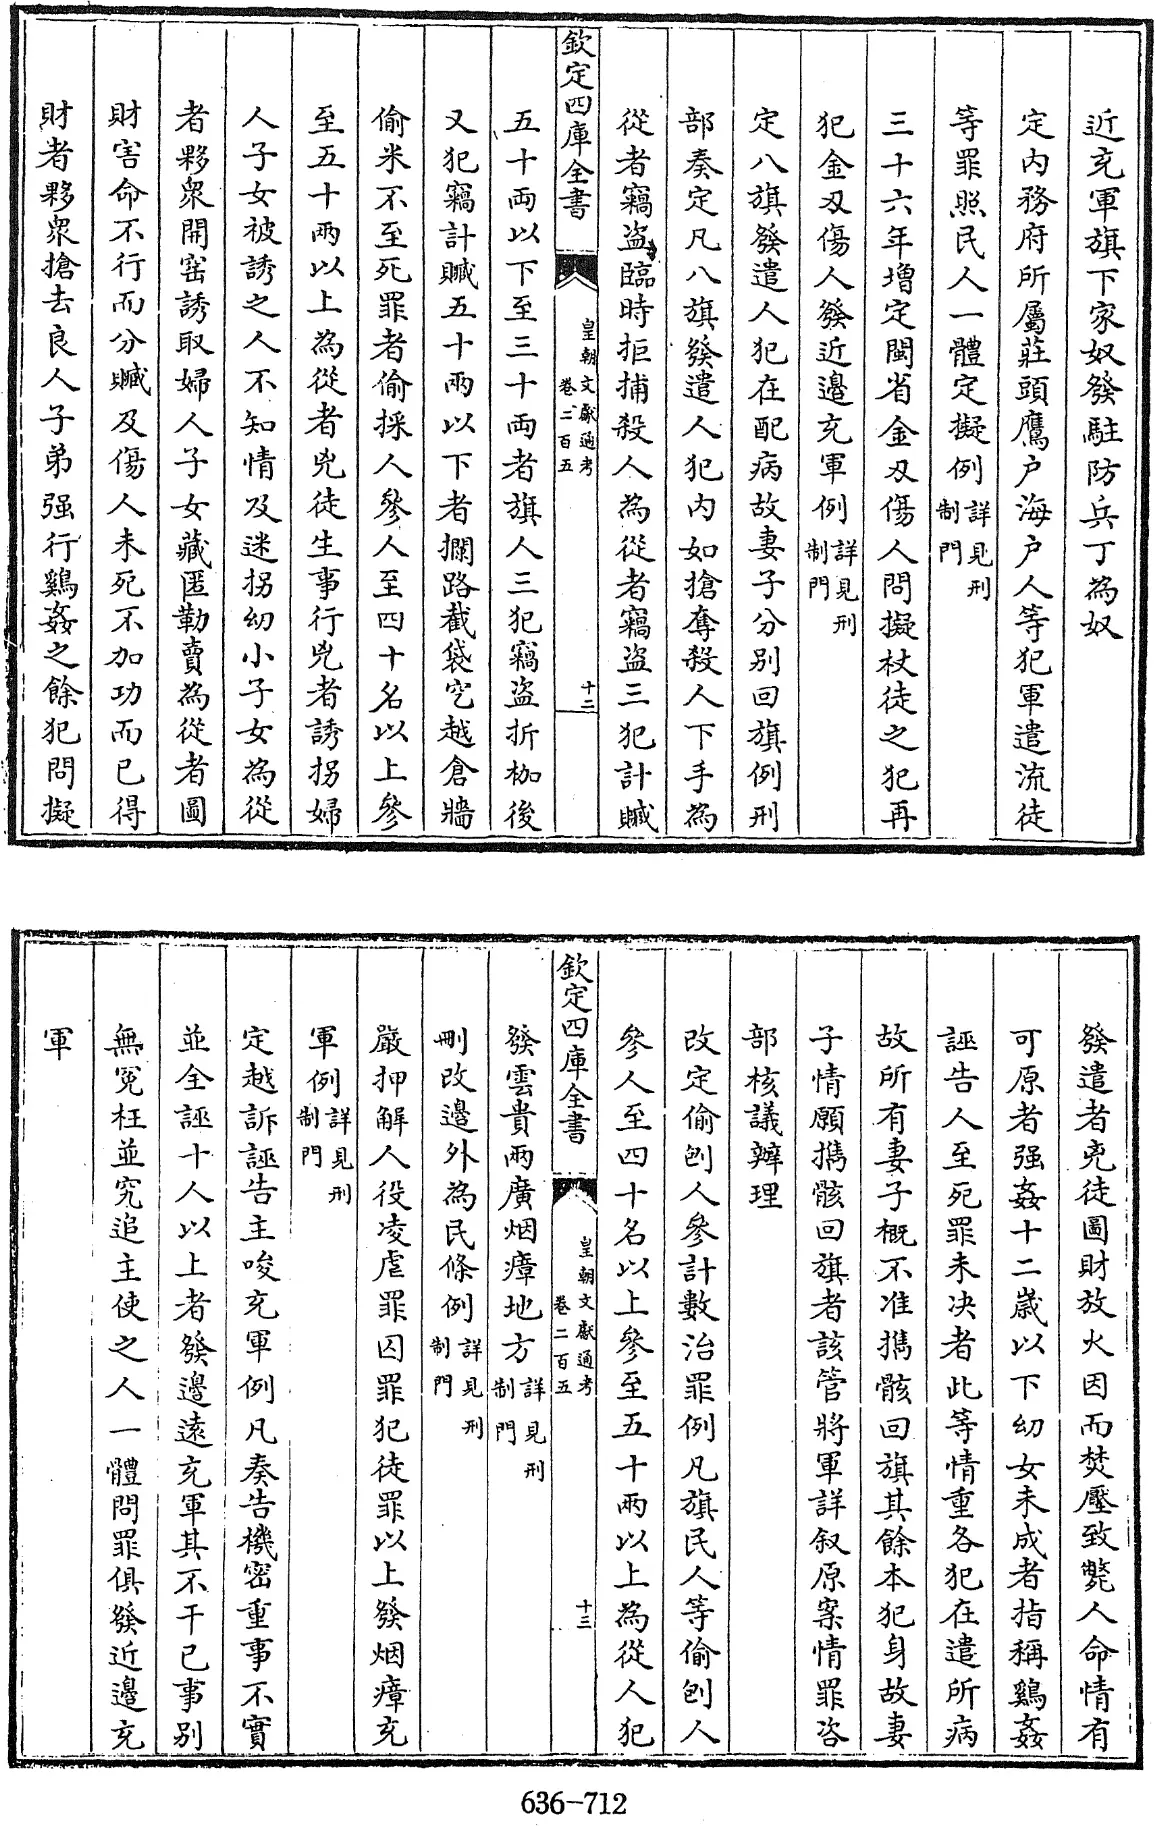 近充軍旗下家奴發駐防兵丁為奴
定内務府所屬莊頭鷹户海户人等犯軍遣流徒
等罪照民人一體定擬例詳見刑制門
三十六年增定閩省金刃傷人問擬杖徒之犯再
犯金刃傷人發近邊充軍例詳見刑制門
定八旗發遣人犯在配病故妻子分别回旗例刑
部奏定凡八旗發遣人犯内如搶奪殺人下手為
從者竊盜臨時拒捕殺人為從者竊盜三犯計贓
欽定四庫全書
皇朝文獻通考
卷二百五
十二
五十兩以下至三十兩者旗人三犯竊盜折枷後
又犯竊計贓五十兩以下者攔路截袋穵越倉牆
偷米不至死罪者偷採人參人至四十名以上參
至五十兩以上為從者兇徒生事行兇者誘拐婦
人子女被誘之人不知情及迷拐幼小子女為從
者夥衆開窑誘取婦人子女藏匿勒賣為從者圖
財害命不行而分贓及傷人未死不加功而已得
財者夥衆搶去良人子弟强行鷄姦之餘犯問擬
發遣者兇徒圖財放火因而焚壓致斃人命情有
可原者强姦十二歲以下幼女未成者指稱鷄姦
誣告人至死罪未决者此等情重各犯在遣所病
故所有妻子概不准攜骸回旗其餘本犯身故妻
子情願攜骸回旗者該管將軍詳叙原案情罪咨
部核議辦理
改定偷刨人參計數治罪例凡旗民人等偷刨人
參人至四十名以上參至五十兩以上為從人犯
欽定四庫全書
皇朝文獻通考
卷二百五
十三
發雲貴兩廣烟瘴地方詳見刑制門
刪改邊外為民條例詳見刑制門
嚴押解人役凌虐罪囚罪犯徒罪以上發烟瘴充
軍例詳見刑制門
定越訴誣告主唆充軍例凡奏告機密重事不實
並全誣十人以上者發邊遠充軍其不干已事别
無冤枉並究追主使之人一體問罪俱發近邊充
軍
636-712